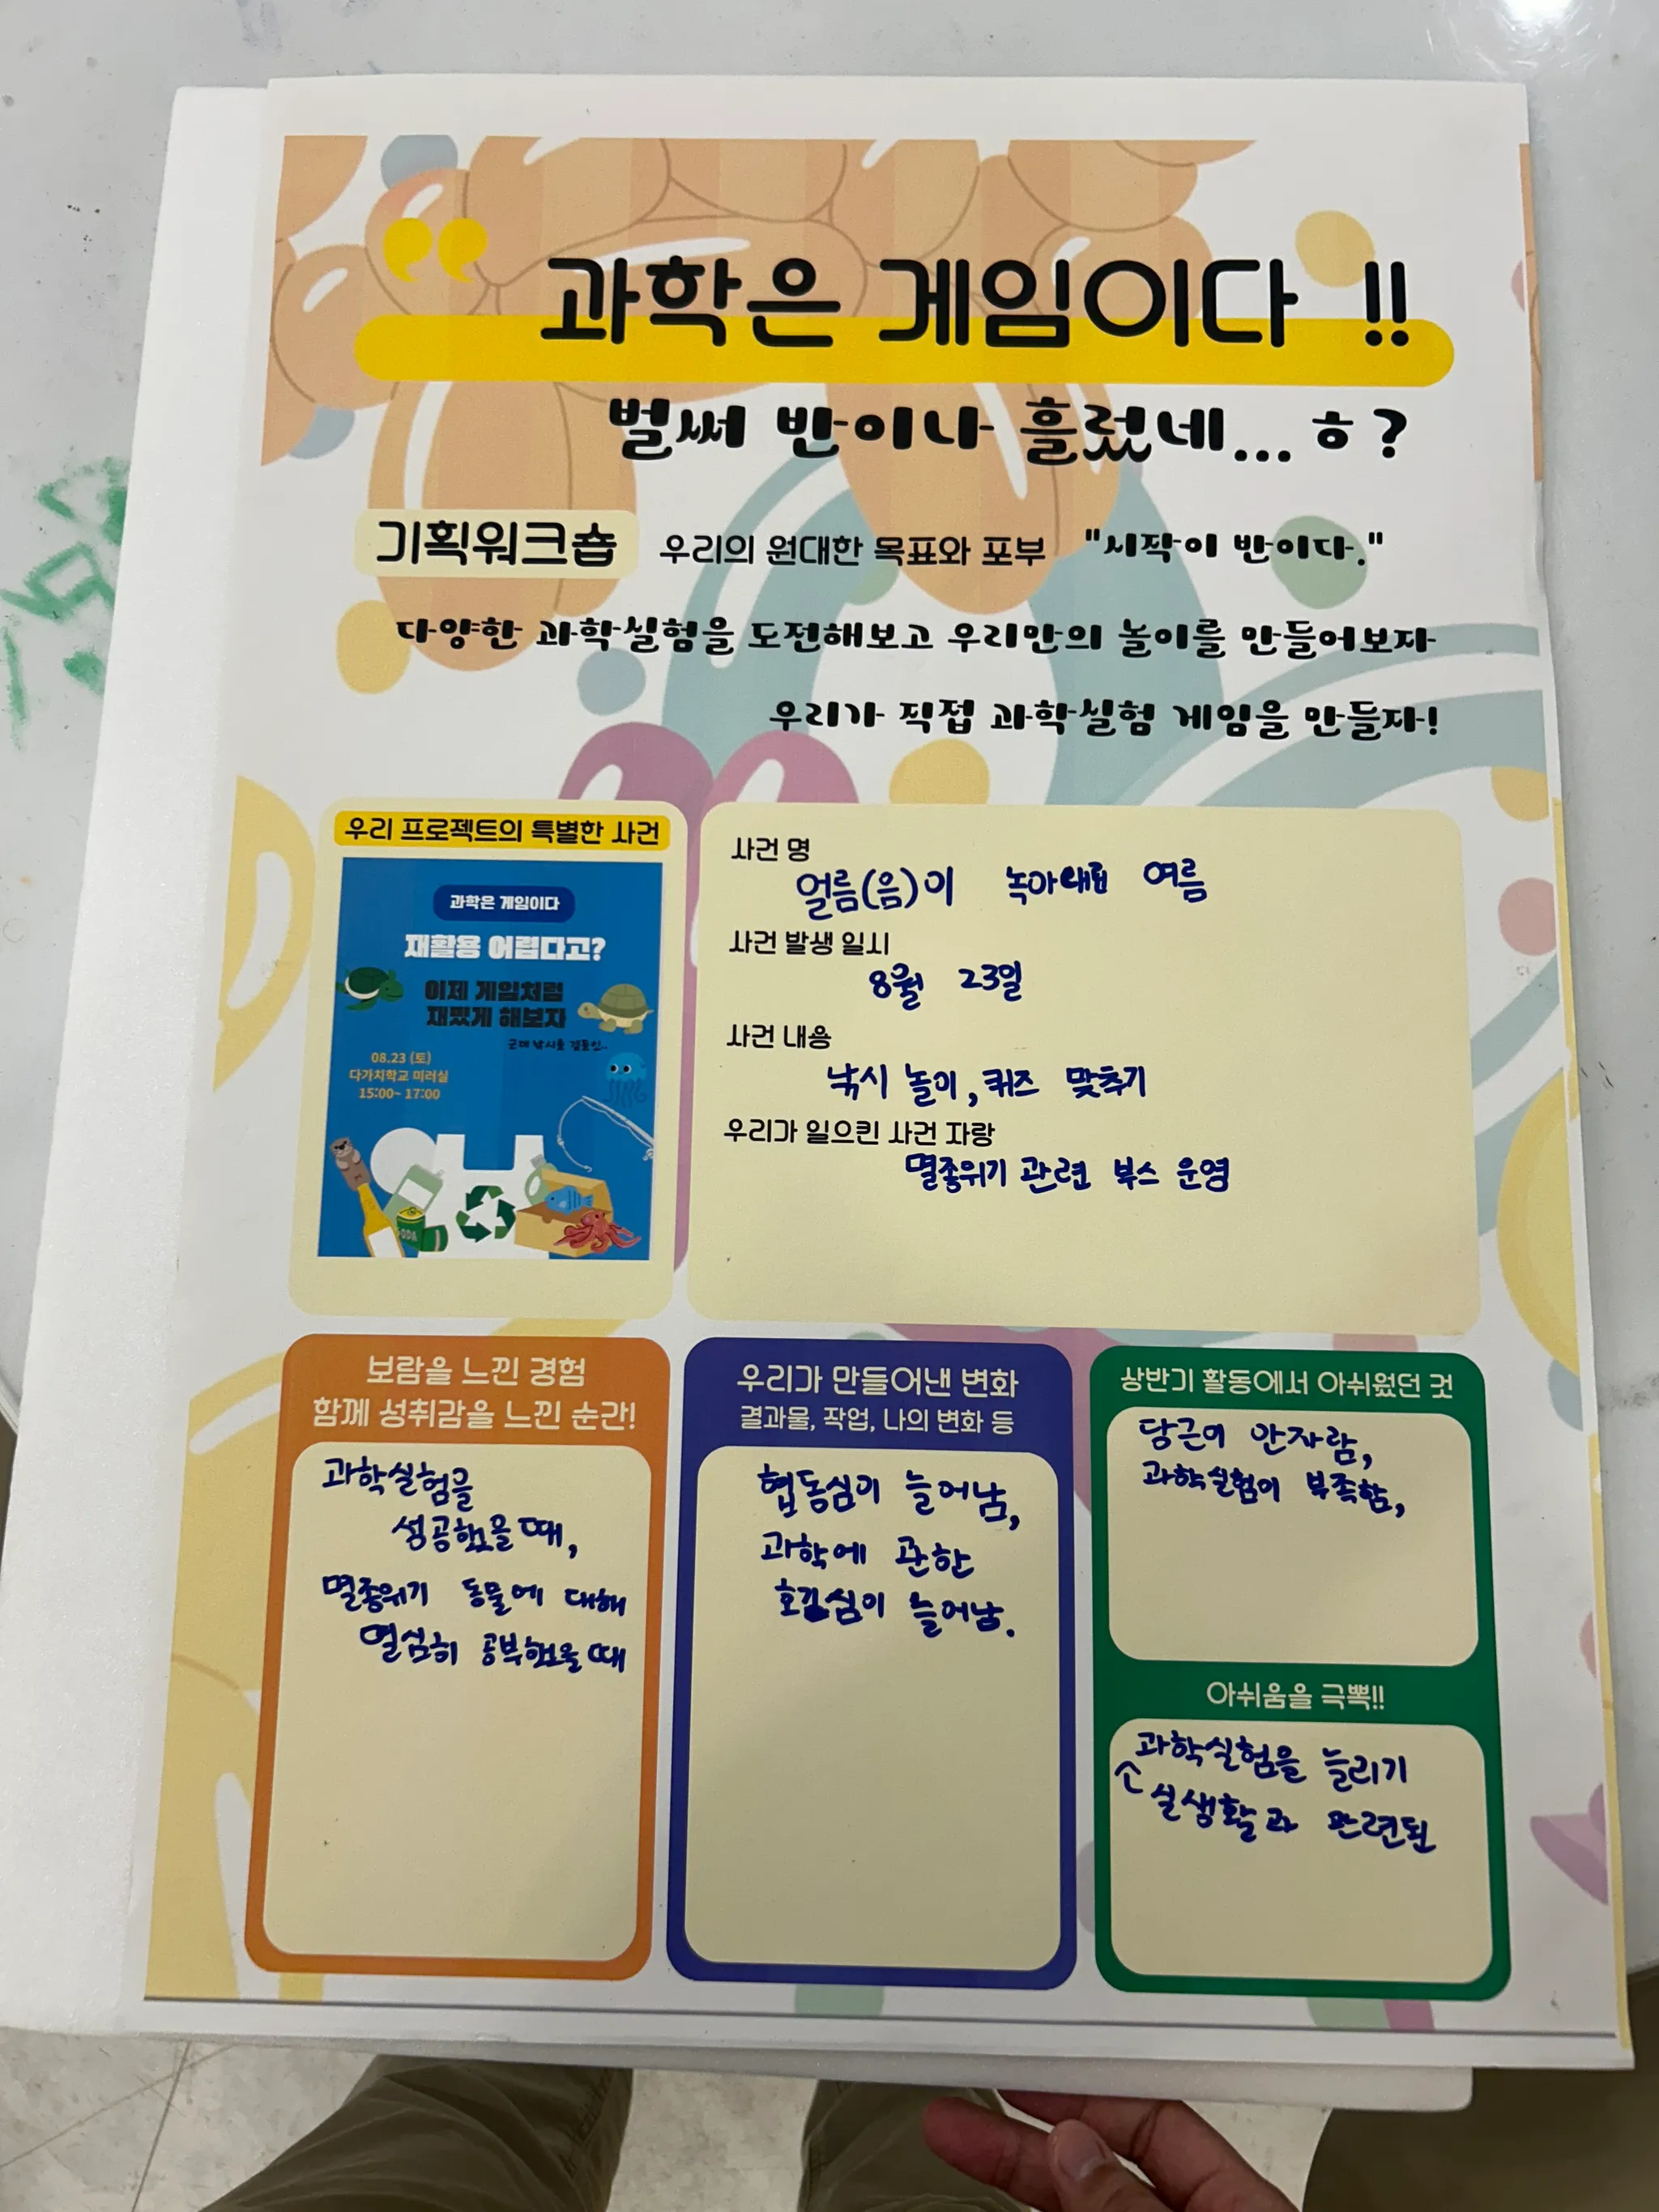 과학은 게임이다 !!
벌써 반이나 흘렀네...ㅎ?
기획워크숍 우리의 원대한 목표와 포부 "시작이 반이다."
다양한 과학실험을 도전해보고 우리만의 놀이를 만들어보자
우리가 직접 과학실험 게임을 만들자!
우리 프로젝트의 특별한 사건
과학은 게임이다
재활용 어렵다고?
이제 게임처럼
재밌게 해보자
근데 낚시를 곁들인..
08.23 (토)
다가치학교 미러실
15:00~ 17:00
SODA
사건 명
얼름(음)이 녹아내린 여름
사건 발생 일시
8월 23일
사건 내용
낚시 놀이, 퀴즈 맞추기
우리가 일으킨 사건 자랑
멸종위기 관련 부스 운영
보람을 느낀 경험
함께 성취감을 느낀 순간!
과학실험을
성공했을 때,
멸종위기 동물에 대해
열심히 공부했을 때
우리가 만들어낸 변화
결과물, 작업, 나의 변화 등
협동심이 늘어남,
과학에 관한
호기심이 늘어남.
상반기 활동에서 아쉬웠던 것
당근이 안자람,
과학실험이 부족함,
아쉬움을 극뽁!!
과학실험을 늘리기
실생활과 관련된